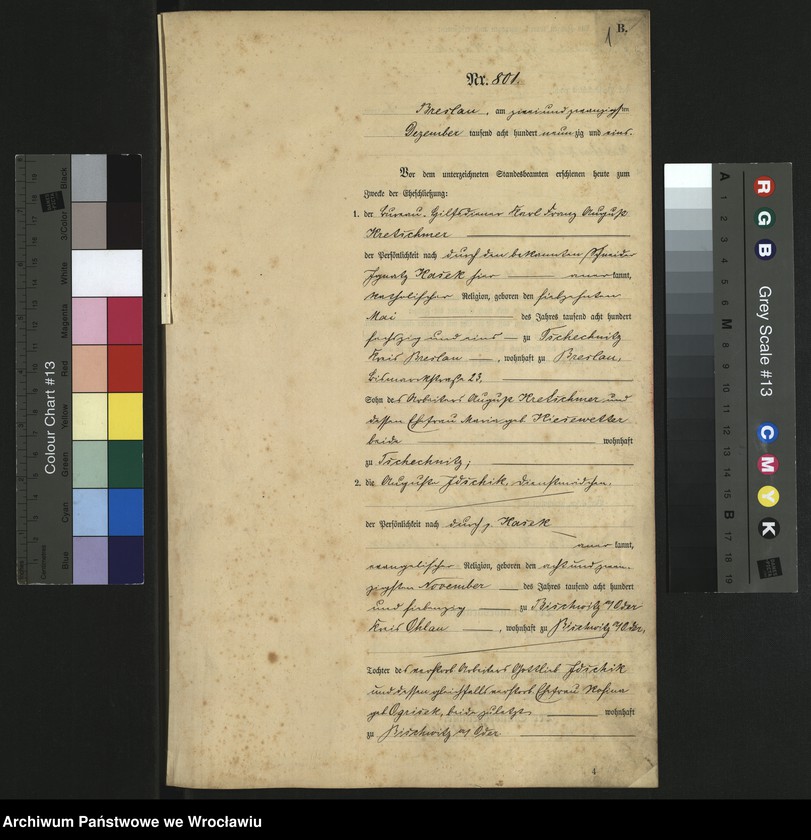 B.
1
Nr. 801.
Breslau, am zweiundzwanzigsten
Dezember tausend acht hundert neunzig und eins.
Vor dem unterzeichneten Standesbeamten erschienen heute zum
Zwecke der Eheschließung:
1. der Bureau-Hilfsdiener Karl Franz August
Kretschmer
der Persönlichkeit nach durch den bekannten Schneider
Ignatz Hasek hier anerkannt,
katholischer Religion, geboren den siebzehnten
Mai des Jahres tausend acht hundert
sechszig und eins zu Tschechnitz
Kreis Breslau, wohnhaft zu Breslau,
Bismarckstraße 23,
Sohn des Arbeiters August Kretschmer und
dessen Ehefrau Maria geb Kiesewetter
beide wohnhaft
zu Tschechnitz;
2. die Auguste Jdschik, Dienstmädchen,
der Persönlichkeit nach durch p. Hasek
anerkannt,
evangelischer Religion, geboren den achtundzwan-
zigsten November des Jahres tausend acht hundert
und siebenzig zu Bischwitz a/Oder
Kreis Ohlau, wohnhaft zu Bischwitz a/Oder,
Tochter des verstorb Arbeiters Gottlieb Jdschik
und dessen gleichfalls verstorb Ehefrau Rosina
geb Ogrisek, beide zuletzt wohnhaft
zu Bischwitz a/Oder
4
Colour Chart #13
Black
3/Color
White
Magenta
Red
Yellow
Green
Cyan
Blue
Grey Scale #13
R
G
B
C
M
Y
K
A
1
2
3
4
5
6
M
8
9
10
11
12
13
14
15
B
17
18
19
Archiwum Państwowe we Wrocławiu